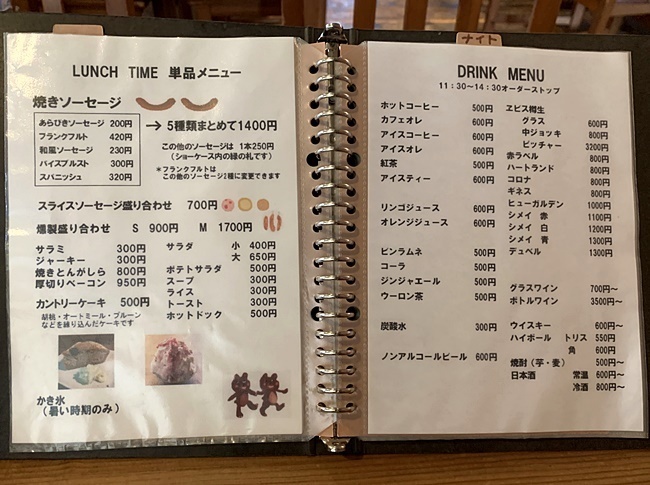 ナイト
LUNCH TIME 単品メニュー
焼きソーセージ
あらびきソーセージ 200円
フランクフルト 420円
和風ソーセージ 230円
バイスブルスト 300円
スパニッシュ 320円
→ 5種類まとめて1400円
この他のソーセージは 1本250円
(ショーケース内の緑の札です)
*フランクフルトは
この他のソーセージ2種に変更できます
スライスソーセージ盛り合わせ 700円
燻製盛り合わせ S 900円 M 1700円
サラミ 300円
ジャーキー 300円
焼きとんがしら 800円
厚切りベーコン 950円
カントリーケーキ 500円
胡桃・オートミール・プルーン
などを練り込んだケーキです
サラダ 小 400円
大 650円
ポテトサラダ 500円
スープ 300円
ライス 300円
トースト 300円
ホットドック 500円
かき氷
(暑い時期のみ)
DRINK MENU
11:30~14:30オーダーストップ
ホットコーヒー 500円
カフェオレ 600円
アイスコーヒー 600円
アイスオレ 600円
紅茶 500円
アイスティー 600円
リンゴジュース 600円
オレンジジュース 600円
ビンラムネ 500円
コーラ 500円
ジンジャエール 500円
ウーロン茶 500円
炭酸水 300円
ノンアルコールビール 600円
ヱビス樽生
グラス 600円
中ジョッキ 800円
ピッチャー 3200円
赤ラベル 800円
ハートランド 800円
コロナ 800円
ギネス 800円
ヒューガルデン 1000円
シメイ 赤 1100円
シメイ 白 1200円
シメイ 青 1300円
デュベル 1300円
グラスワイン 700円~
ボトルワイン 3500円~
ウイスキー 600円~
ハイボール トリス 550円
角 600円
焼酎(芋・麦) 500円~
日本酒 常温 600円~
冷酒 800円~